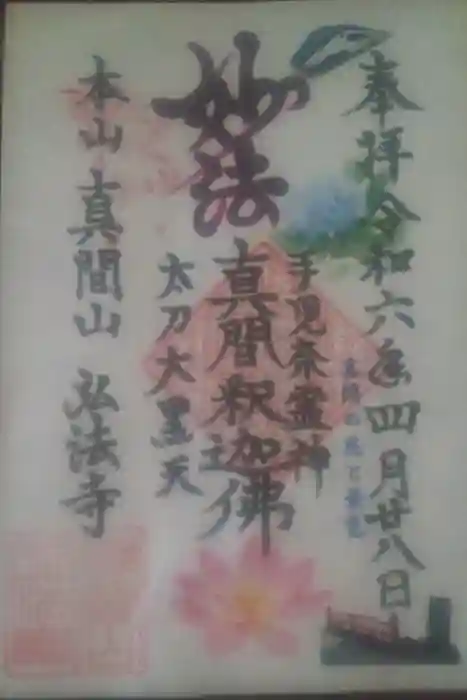 奉拝 令和六年四月廿八日
妙法
手児奈霊神
真間釈迦佛
太刀大黒天
本山 真間山 弘法寺